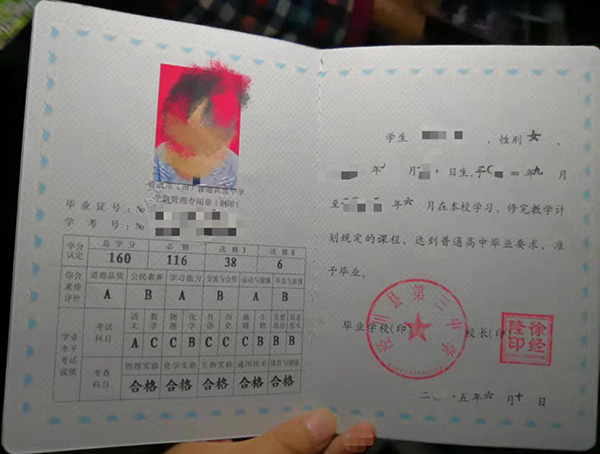 毕业证号：No
学考号：No
学分认定 总学分 必修 选修Ⅰ 选修Ⅱ
160 116 38 6
综合素质评价 道德品质 公民素养 学习能力 交流与合作 运动与健康 审美与表现
A B A B A B
学业水平考试成绩 考试科目 语文 数学 物理 化学 外语 历史 地理 生物 思想政治 信息技术
A C C B C C B C B B
考查科目 物理实验 化学实验 生物实验 通用技术 体育与健康
合格 合格 合格 合格 合格
学生 ，性别 女 、
年 月 日生，于 年九月
至 年六月在本校学习，修完教学计
划规定的课程，达到普通高中毕业要求，准
予毕业。
毕业学校(印 校长(印
川县第三中学
徐经隆印
二〇一五年六月十日